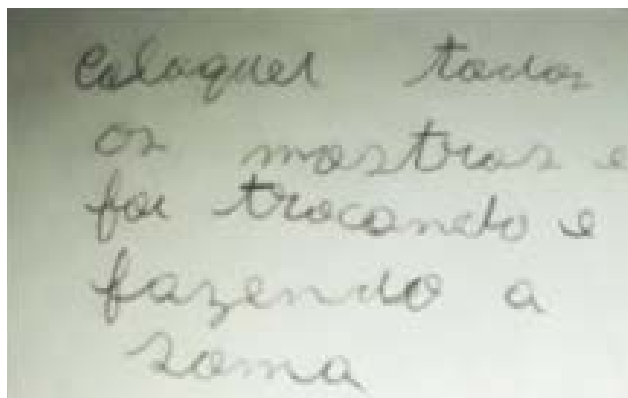 Coloquei todos
os mostros e
foi trocando e
fazendo a
soma